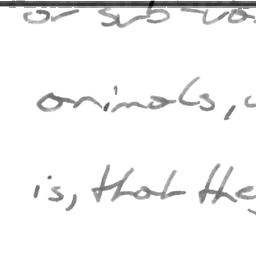 or sub-
animals,
is, that they